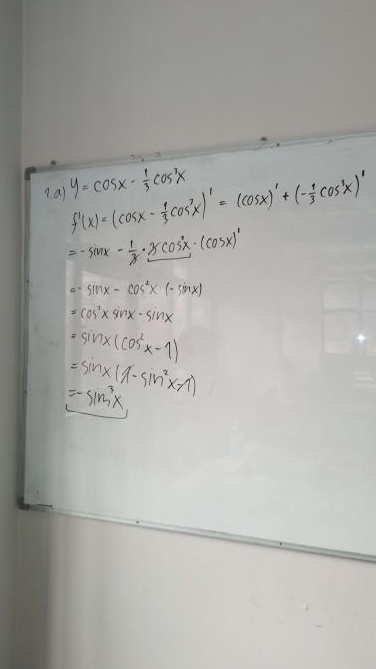 1.a) y = cosx - 1/3 cos³x
f'(x) = (cosx - 1/3 cos³x)' = (cosx)' + (-1/3 cos³x)'
= - sinx - 1/3 · 3 cos²x · (cosx)'
= - sinx - cos²x · (-sinx)
= cos²x sinx - sinx
= sinx (cos²x - 1)
= sinx (1 - sin²x - 1)
= - sin³x